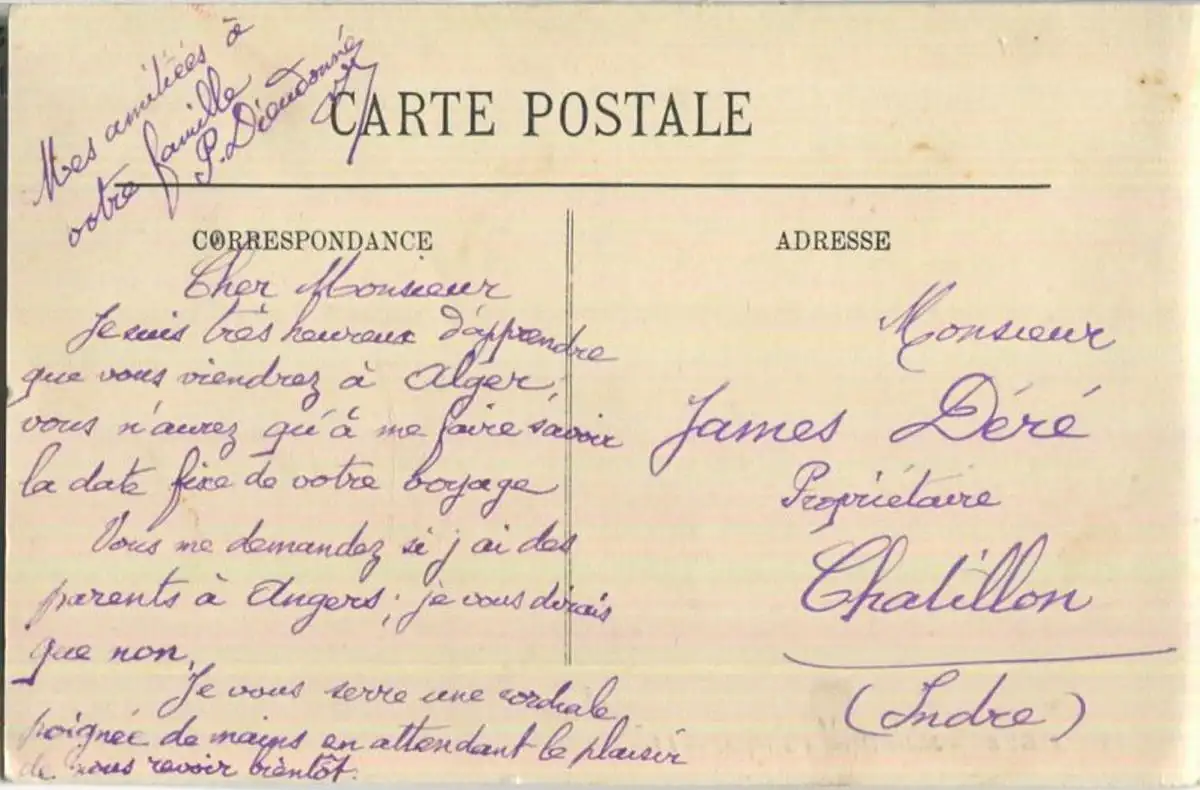 Mes amitiées à
votre famille
P. Dieudonné
CARTE POSTALE
CORRESPONDANCE
Cher Monsieur
Je suis très heureux d'apprendre
que vous viendrez à Alger;
vous n'aurez qu'à me faire savoir
la date fixe de votre voyage
Vous me demandez si j'ai des
parents à Angers; je vous dirais
que non.
Je vous serre une cordiale
poignée de mains en attendant le plaisir
de vous revoir bientôt.
ADRESSE
Monsieur
James Déré
Propriétaire
Chatillon
(Indre)